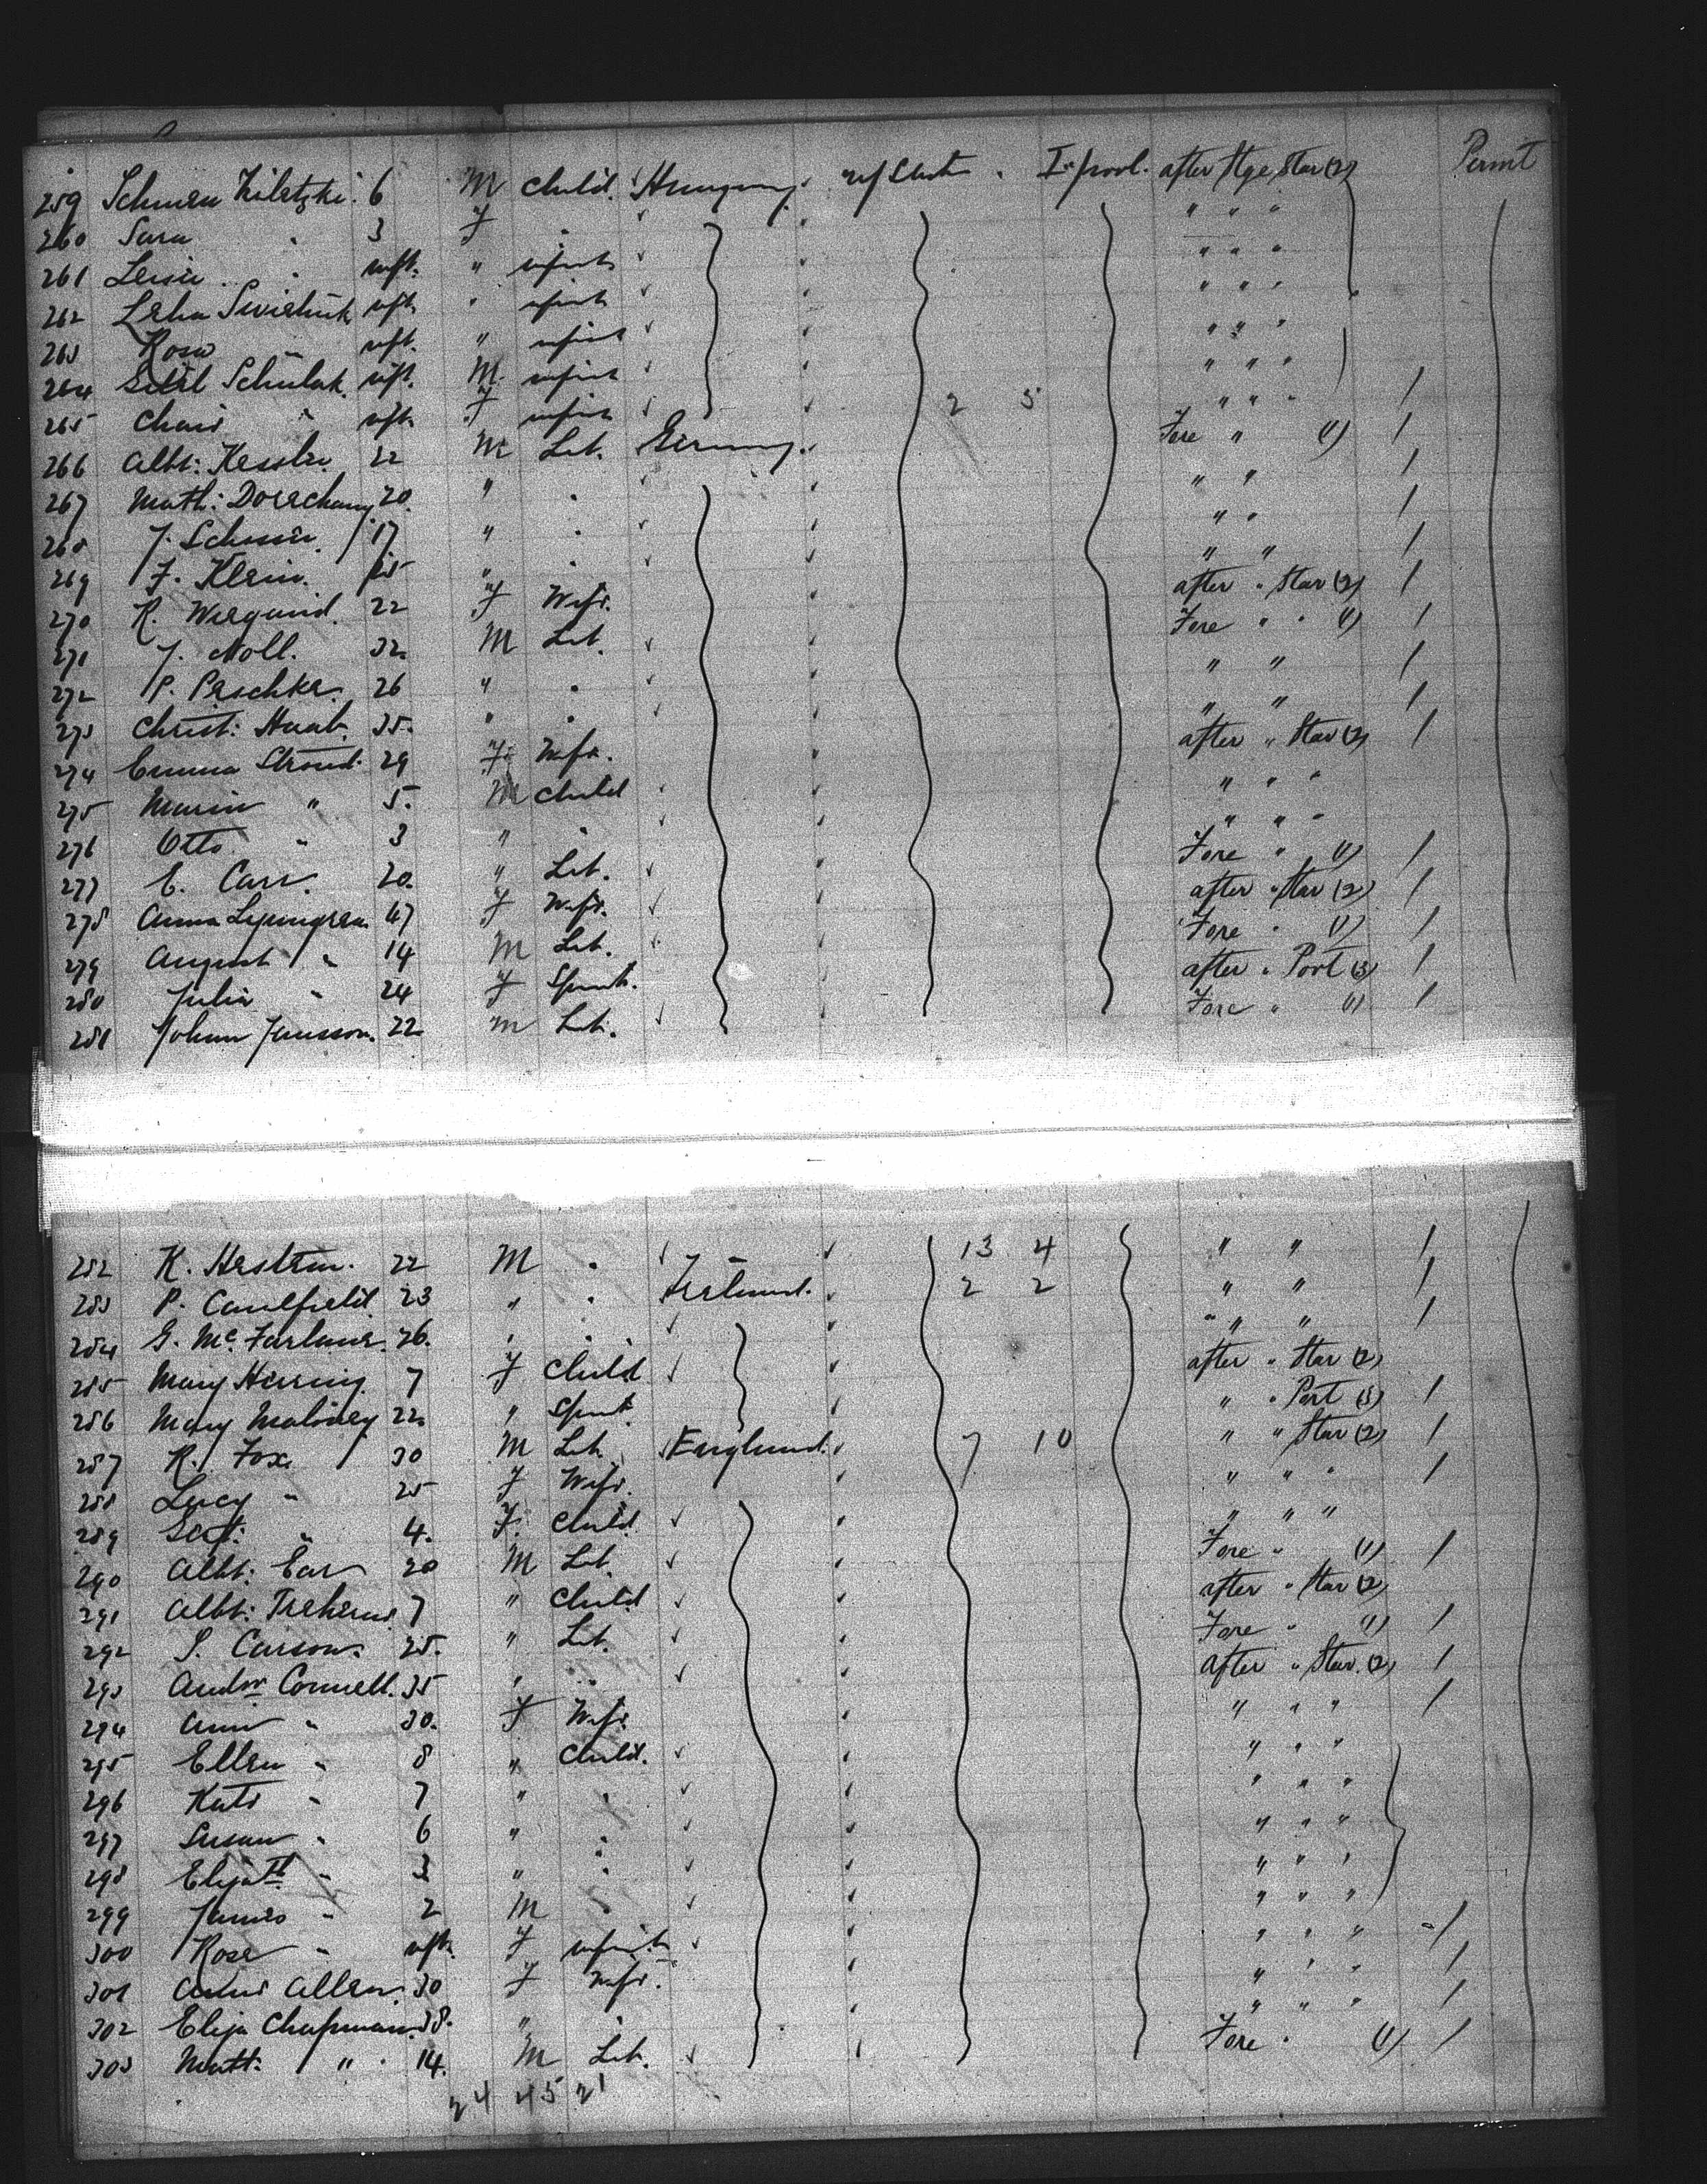 259 Schmen Zilatzki. 6 M Child. Hungary. U/States. L'pool. after Stge Star (2) Permit
260 Sara " 3 F " " " "
261 " inft. " infant " " "
262 inft. " infant " " "
263 Rosa " inft. " infant " " "
264 Schulak. inft. M. infant " " "
265 " inft. F infant 2 5 " " " /
266 Albt: Kessler. 22 M Lab. Germany. Fore " (1) /
267 Math: 20. " " " " /
268 J. 17 " " " " /
269 J. Klein. 25 " " " " /
270 K. Wiegand. 22 F Wife. after " Star (2) /
271 J. Noll. 32. M Lab. Fore " " (1) /
272 P. Peschke. 26 " " " " /
273 Christ: Haab. 35. " " " " /
274 Emma Stroud. 29 F. Wife. after " Star (2) /
275 " 5. M Child " " "
276 Otto " 3 " " " " "
277 E. Carr. 20. " Lab. Fore " (1) /
278 Anna 47 F Wife. after " Star (2) /
279 August " 14 M Lab. Fore " (1) /
280 Julia " 24 F Spinst. after " Port (3) /
281 Johan Jansson. 22 M Lab. Fore " (1) /
282 K. Hestrem. 22 M " 13 4 " " /
283 P. Caulfield. 23 " " Ireland. 2 2 " " /
284 G. McFarlane. 26. " " " " /
285 Mary Herring. 7 F Child after " Star (2)
286 Mary Maloney 22. " Spinst. " " Port (3) /
287 R. Fox. 30 M Lab. England. 7 10 " " Star (2) /
288 Lucy " 25 F Wife. " " " /
289 Gert: " 4. F. Child " " "
290 Albt: Ear 20 M Lab. Fore " (1) /
291 Albt: Treherne 7 " Child after " Star (2)
292 S. Carson. 25. " Lab. Fore " (1) /
293 Andw Connell. 35 " " after " Star. (2) /
294 Ann " 30. F Wife " " " /
295 Ellen " 8 " Child. " " "
296 Kate " 7 " " " " "
297 Susan " 6 " " " " "
298 Elizath " 3 " " " " "
299 James " 2 M " " " "
300 Rose " inft. F infant " " " /
301 Allen. 30 F Wife. " " " /
302 Eliza Chapman. 38. " " " " " /
303 Matt: " 14. M Lab. Fore " (1) /
24 45 21